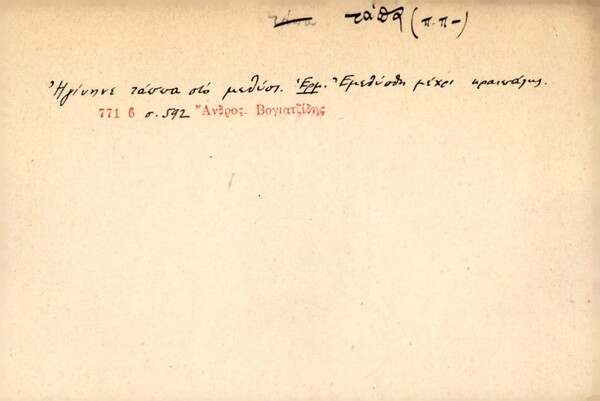 τάπα τάπα (π.π-)
Ἠγίνηνε τάππα στὸ μεθύσι. Ἑρμ. Ἐμεθύσθη μέχρι κραιπάλης.
771 6 σ. 592 Ἄνδρος. Βογιατζίδης